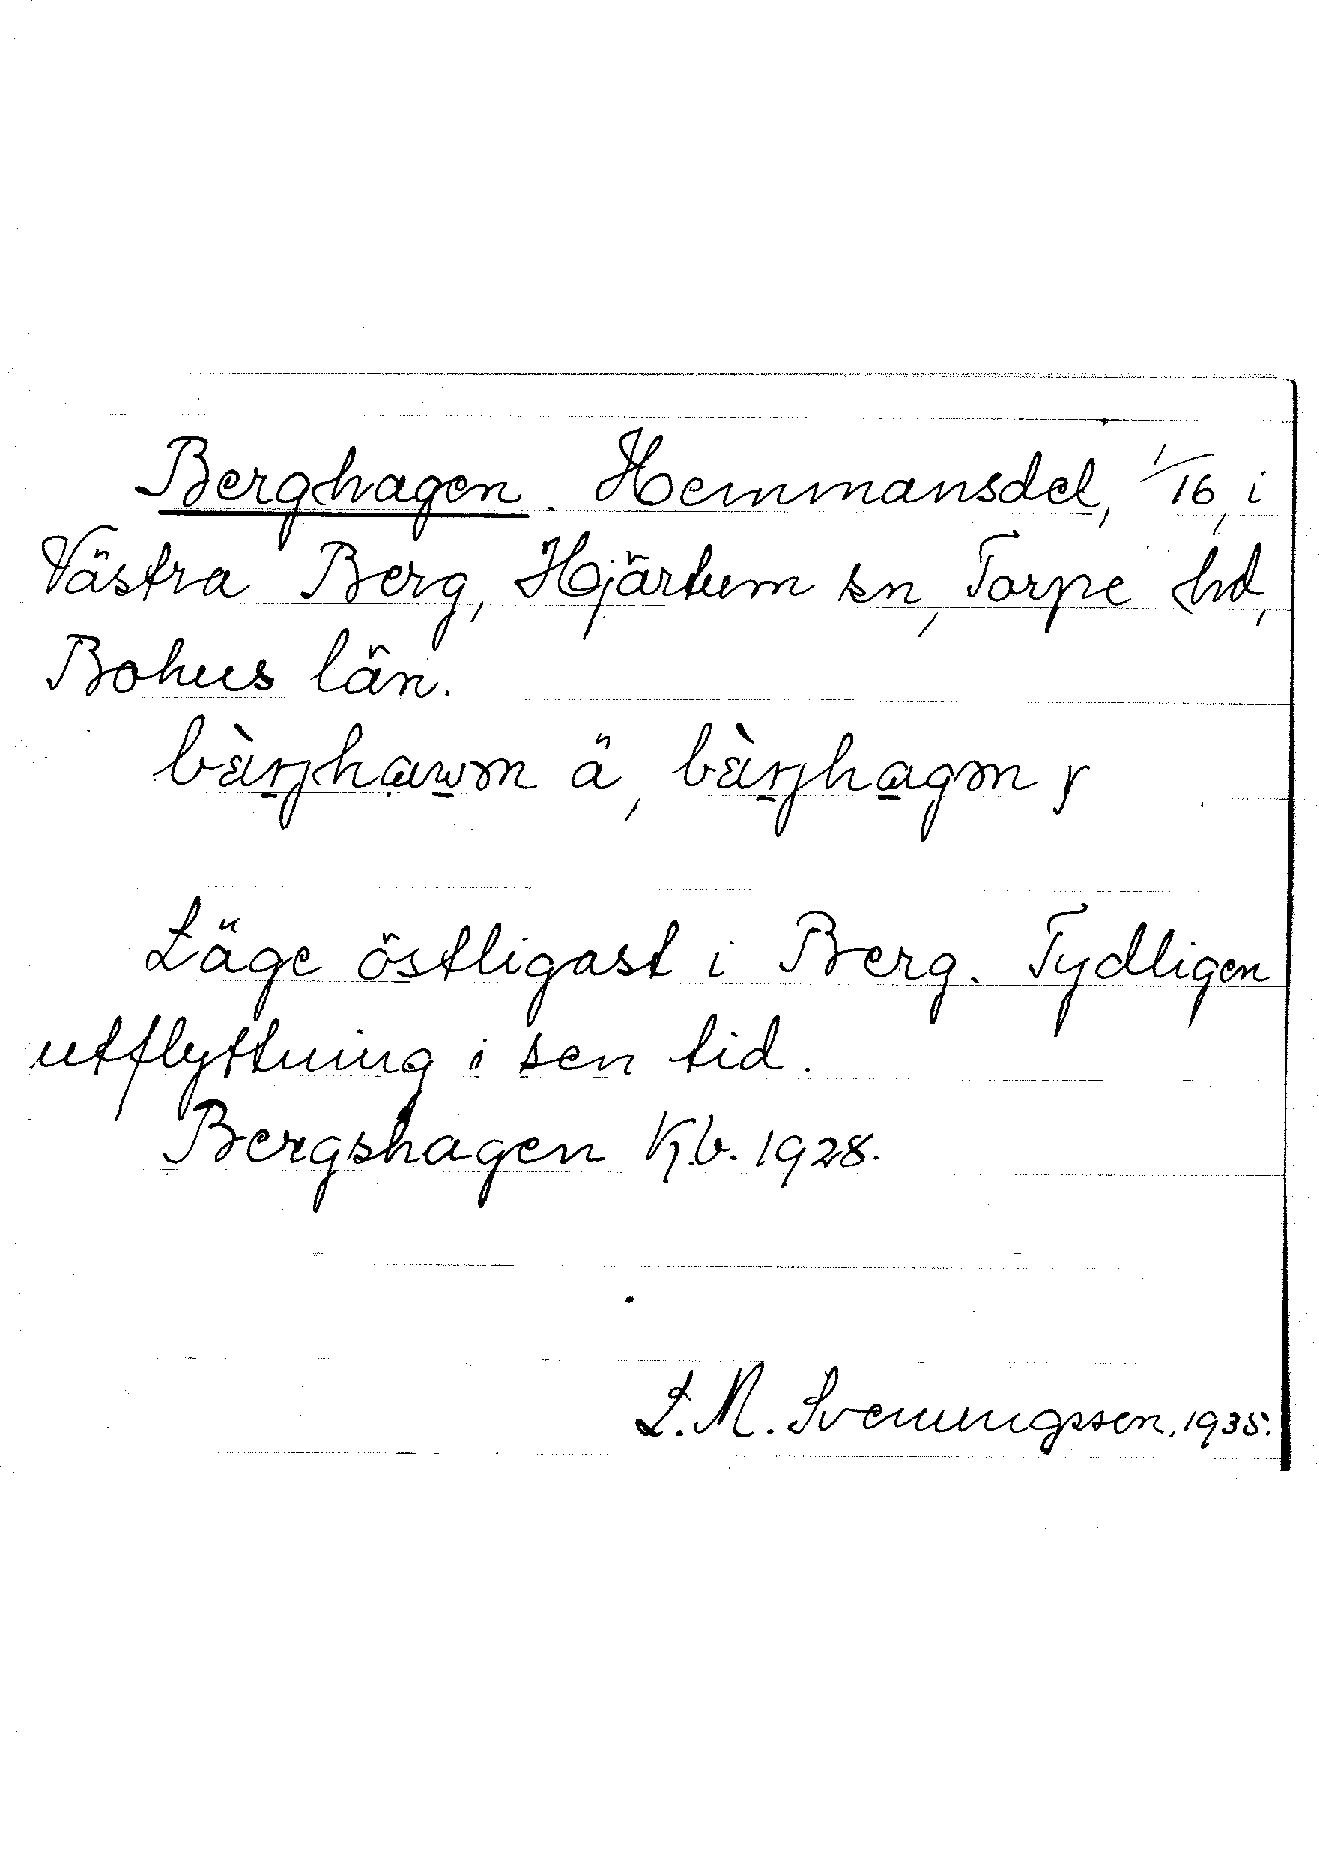 Berghagen. Hemmansdel, 1/16, i
Västra Berg, Hjärtum sn, Torpe hd,
Bohus län.
bàrjhawm ä, bàrjhagm y
Läge östligast i Berg. Tydligen
utflyttning i sen tid.
Bergshagen Kb. 1928.
L. M. Svenungsson, 1935.